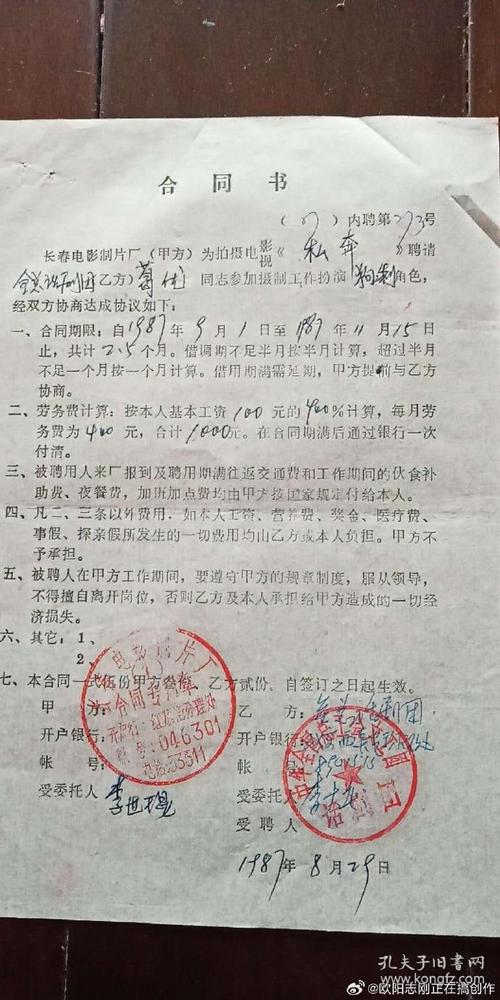 合同书
(87)内聘第273号
长春电影制片厂(甲方)为拍摄电影视《私奔》聘请
全总话剧团(乙方)葛优同志参加摄制工作扮演狗剩角色,
经双方协商达成协议如下:
一、合同期限:自1987年9月1日至1987年11月15日
止,共计2.5个月。借调期不足半月按半月计算,超过半月
不足一个月按一个月计算。借用期满需延期,甲方提前与乙方
协商。
二、劳务费计算:按本人基本工资100元的400%计算,每月劳
务费为400元,合计1000元。在合同期满后通过银行一次
付清。
三、被聘用人来厂报到及聘用期满往返交通费和工作期间的伙食补
助费、夜餐费,加班加点费均由甲方按国家规定付给本人。
四、凡二、三条以外费用,如本人工资、营养费、奖金、医疗费、
事假、探亲假所发生的一切费用均由乙方或本人负担。甲方不
予承担。
五、被聘人在甲方工作期间,要遵守甲方的规章制度,服从领导,
不得擅自离开岗位,否则乙方及本人承担给甲方造成的一切经
济损失。
六、其它:1、
2、
七、本合同一式伍份甲方叁份,乙方贰份,自签订之日起生效。
甲方:
乙方:全总话剧团
开户银行:
开户银行:
帐号:
帐号:
受委托人 李世
受委托人 李
受聘人
电影制片厂
合同专用章
046301
电话:53511
话剧团
1987年8月29日
孔夫子旧书网
www.kongfz.com
@欧阳志刚正在搞创作